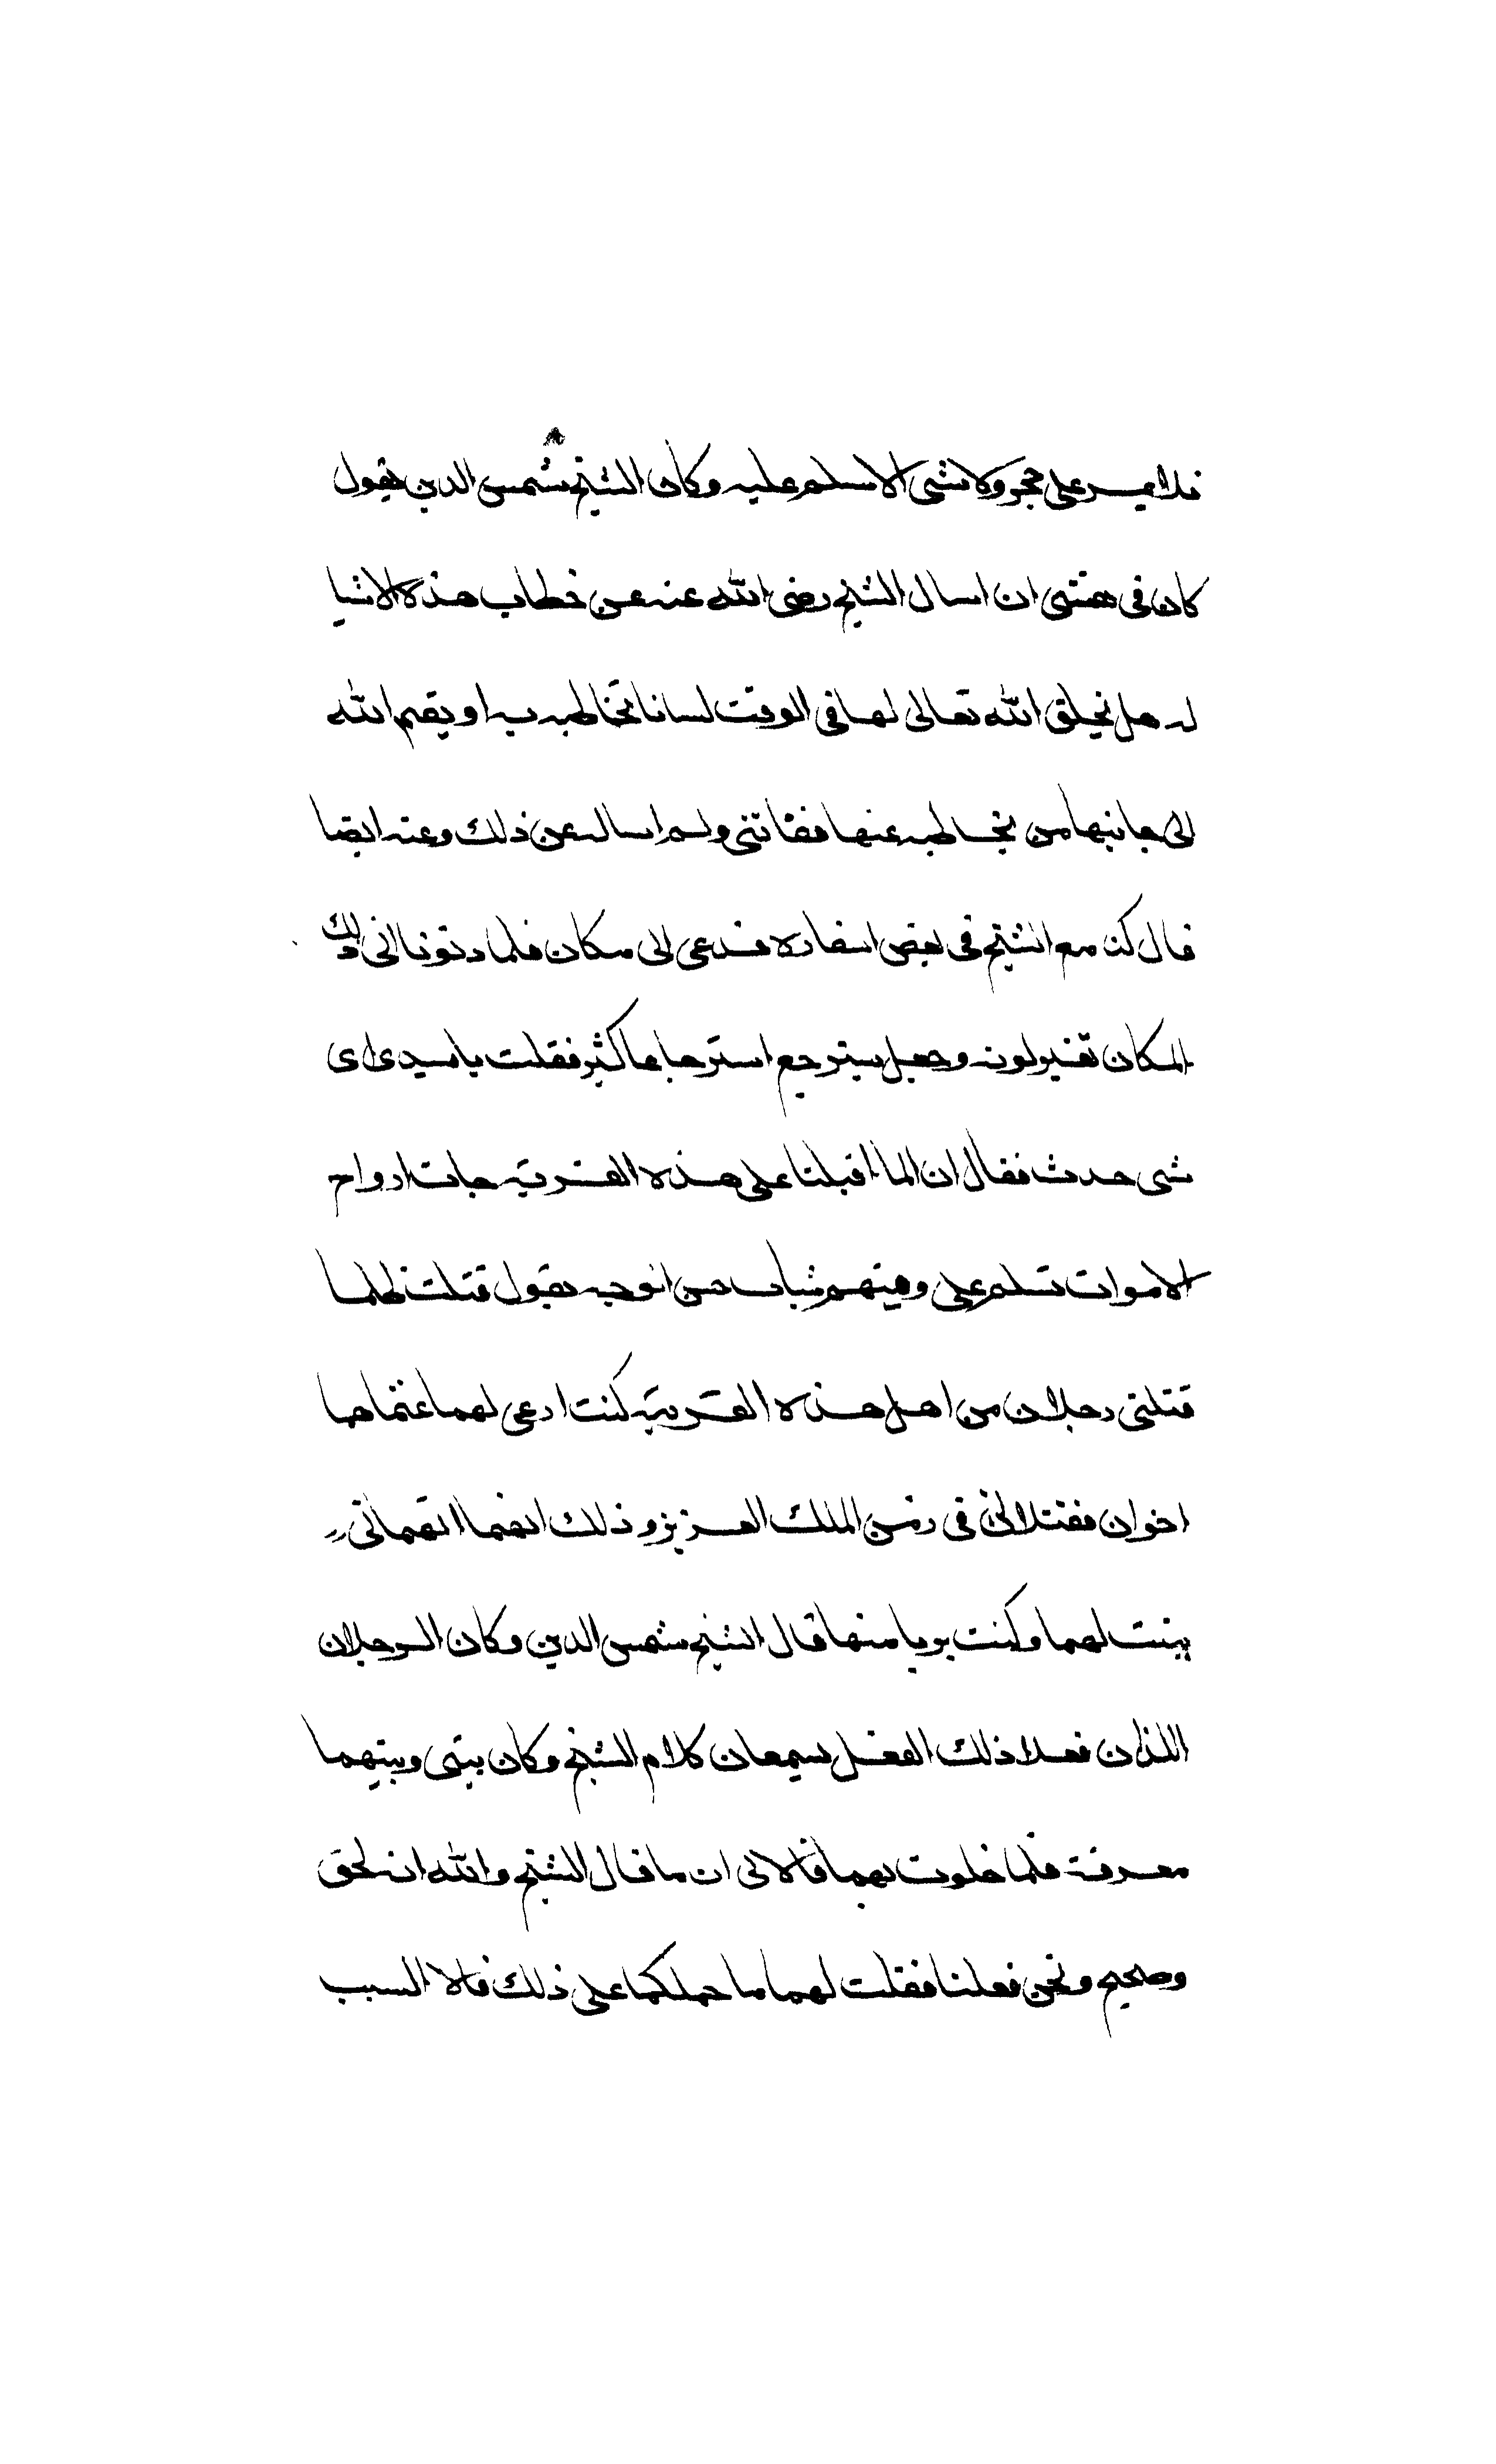 فلا يمر على حجر ولا شى الا سلم عليه وكان الشيخ شمس الدين يقول
كان فى همتى ان اسال الشيخ رضى الله عنه عن خطاب هذه الاشيا
له هل يخلق الله تعالى لها فى الوقت لسانا تخاطبه به او يقيم الله
الى جانبها من يخاطبه عنها ففاتنى ولم اساله عن ذلك وعنه ايضا
قال كنت مع الشيخ فى بعض اسفاره فدعى الى مكان فلما دنونا الى ذلك
المكان تغير لونه وجعل يسترجع استرجاعا كثير فقلت يا سيدى اى
شى حدث فقال ان لما اقبلنا على هذه القرية جات ارواح
الاموات تسلم على وفيهم شاب حسن الوجه يقول قتلت ظلما
قتلنى رجلان من اهل هذه القرية كنت ارعى لهما غنما هما
اخوان فقتلانى فى زمن الملك العزيز وذلك انهما اتهمانى
ببنت لهما وكنت بريا منها قال الشيخ شمس الدين وكان الرجلان
اللذان فعلا ذلك الفعل يسمعان كلام الشيخ وكان بينى وبينهما
معرفة فلما خلوت بهما قالا لى ان ما قال الشيخ والله انه لحق
وصحيح ونحن فعلنا فقلت لهما ما حملكما على ذلك قالا السبب